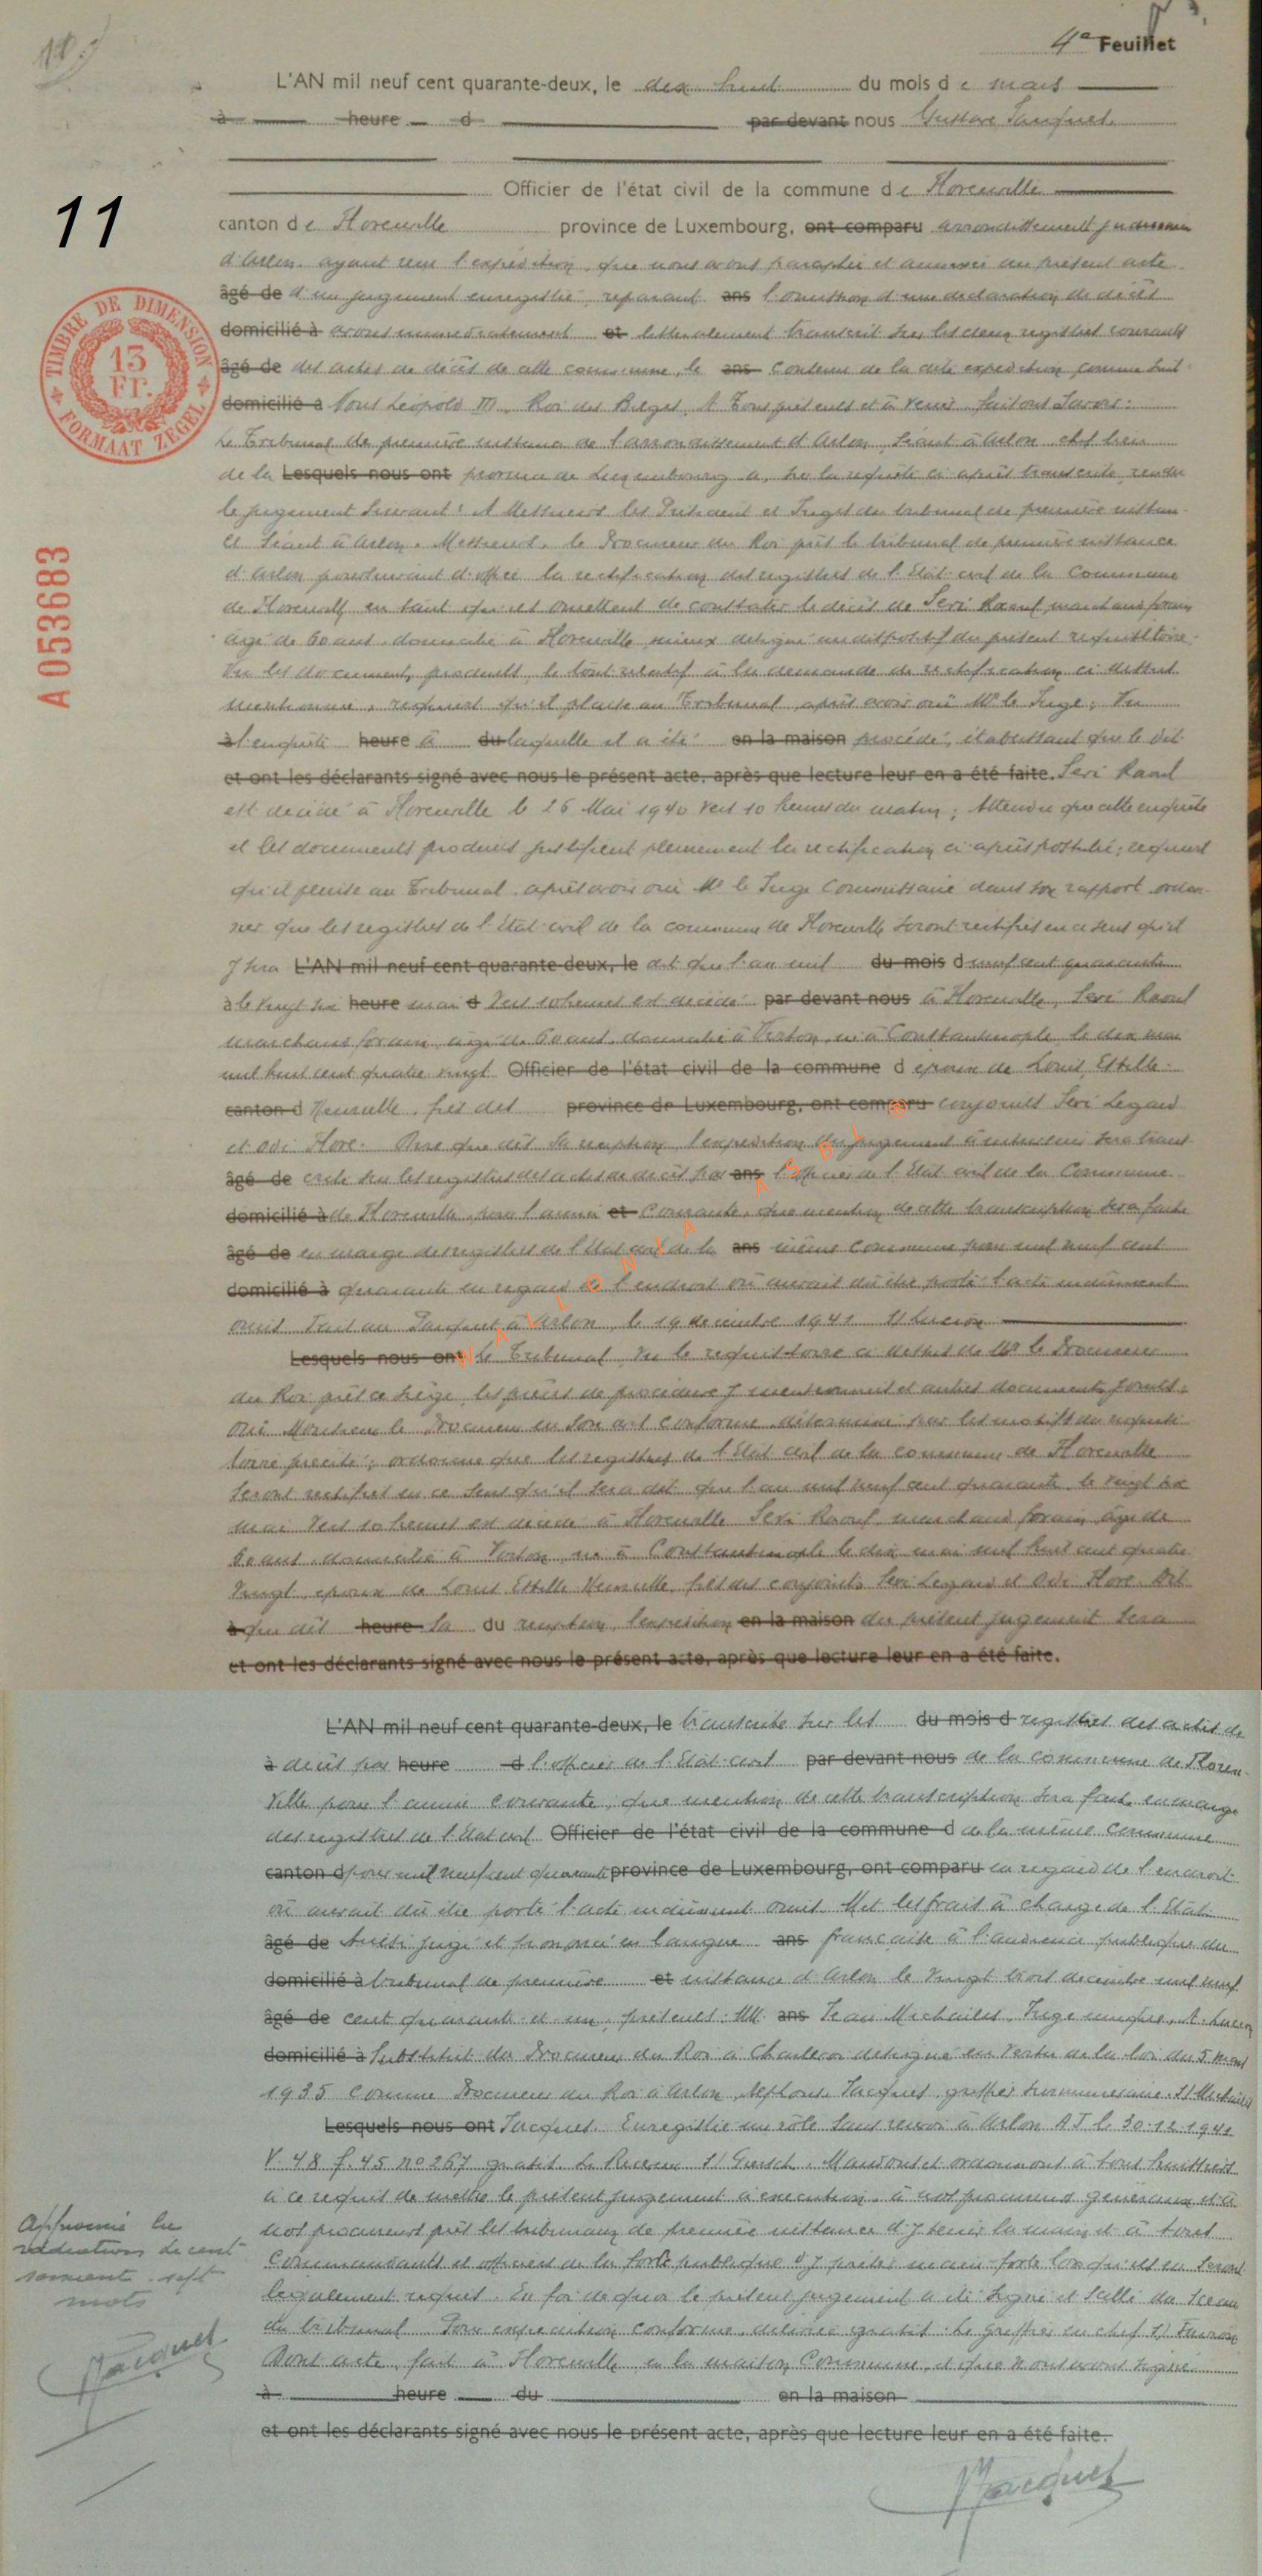 4e Feuillet
L'AN mil neuf cent quarante-deux, le dix huit du mois de mars
à heure d par devant nous Gustave Jacquet
Officier de l'état civil de la commune de Florenville
11
canton de Florenville province de Luxembourg, ont comparu arrondissement judiciaire
d'Arlon, ayant reçu l'expédition, que nous avons paraphée et annexée au présent acte
âgé de d'un jugement enregistré, réparant ans l'omission d'une déclaration de décès
TIMBRE DE DIMENSION
13
FR.
FORMAAT ZEGEL
domicilié à avons immédiatement et littéralement transcrit sur les deux registres courants
âgé de des actes de décès de cette commune, le ans contenu de la dite expédition comme suit
domicilié à Nous Léopold III, Roi des Belges, A Tous présents et à venir faisons savoir:
Le Tribunal de première instance de l'arrondissement d'Arlon, séant à Arlon, chef lieu
de la Lesquels nous ont province de Luxembourg a, sur la requête ci après transcrite, rendu
le jugement suivant: A Messieurs les Président et Juges du tribunal de première instan-
ce séant à Arlon. Messieurs, le Procureur du Roi près le tribunal de première instance
A053683
d'Arlon poursuivant d'office la rectification des registres de l'Etat civil de la Commune
de Florenville en tant qu'ils omettent de constater le décès de Sevi Raoul, marchand forain
âgé de 60 ans, domicilié à Florenville, mieux désigné au dispositif du présent réquisitoire.
Vu les documents produits, le tout relatif à la demande de rectification ci dessus
mentionnée, requiert qu'il plaise au Tribunal, après avoir ouï Mr le Juge; Vu
à l'enquête heure à du laquelle il a été en la maison procédé, établissant que le dit
et ont les déclarants signé avec nous le présent acte, après que lecture leur en a été faite. Sevi Raoul
est décédé à Florenville le 26 Mai 1940 vers 10 heures du matin; Attendu que cette enquête
et les documents produits justifient pleinement la rectification ci après postulée; requiert
qu'il plaise au Tribunal, après avoir ouï Mr le Juge Commissaire dans son rapport ordon-
ner que les registres de l'Etat civil de la commune de Florenville seront rectifiés en ce sens qu'il
y sera L'AN mil neuf cent quarante-deux, le dit que l'an mil du mois d neuf cent quarante
à le vingt six heure mai d vers 10 heures est décédé par devant nous à Florenville, Sevi Raoul
marchand forain, âgé de 60 ans, domicilié à Virton, né à Constantinople le dix mai
mil huit cent quatre vingt Officier de l'état civil de la commune d époux de Louis Estelle
canton d province de Luxembourg, ont comparu conjoints Sevi
et Odi Flore. Dire que dès sa réception, l'expédition du jugement à intervenir sera trans-
âgé de crite sur les registres des actes de décès par ans l'officier de l'Etat civil de la Commune
domicilié à de Florenville, pour l'année et courante, que mention de cette transcription sera faite
âgé de en marge des registres de l'Etat civil de la ans même commune pour mil neuf cent
domicilié à quarante en regard de l'endroit où aurait dû être porté l'acte indûment
omis. Fait au Parquet à Arlon, le 19 décembre 1941 s/ Lucion
WALLONIA ASBL ©
Lesquels nous ont Le Tribunal, Vu le réquisitoire ci dessus de Mr le Procureur
du Roi près ce siège, les pièces de procédure y mentionnées et autres documents joints;
Ouï Monsieur le Procureur en son avis conforme, déterminé par les motifs du réquisi-
toire précité; ordonne que les registres de l'Etat civil de la commune de Florenville
seront rectifiés en ce sens qu'il sera dit que l'an mil neuf cent quarante, le vingt six
mai vers 10 heures est décédé à Florenville Sevi Raoul, marchand forain, âgé de
60 ans, domicilié à Virton, né à Constantinople le dix mai mil huit cent quatre
vingt, époux de Louis Estelle conjoints Sevi et Odi Flore. Dit
à que dès heure sa du réception, l'expédition en la maison du présent jugement sera
et ont les déclarants signé avec nous le présent acte, après que lecture leur en a été faite.
L'AN mil neuf cent quarante-deux, le transcrite sur les du mois d registres des actes de
à décès par heure d l'officier de l'Etat civil par devant nous de la commune de Floren-
ville pour l'année courante, que mention de cette transcription sera faite en marge
des registres de l'Etat civil Officier de l'état civil de la commune d de la même commune
canton d pour mil neuf cent quarante province de Luxembourg, ont comparu en regard de l'endroit
où aurait dû être porté l'acte indûment omis. Met les frais à charge de l'Etat.
âgé de Ainsi jugé et prononcé en langue ans française à l'audience publique du
domicilié à tribunal de première et instance d'Arlon le vingt trois décembre mil neuf
âgé de cent quarante et un, présents: MM. ans Jean Michaëlis, Juge unique, A. Lucion
domicilié à Substitut du Procureur du Roi à Charleroi désigné en vertu de la loi du 5 mars
1935 comme Procureur du Roi à Arlon, Alphonse Jacques, greffier surnuméraire. s/ Michaëlis
Lesquels nous ont Jacques. Enregistré un rôle sans renvoi à Arlon A J le 30-12-1941
V. 48 f. 45 no 267 gratis. Le Receveur s/ Giersch. Mandons et ordonnons à tous huissiers
à ce requis de mettre le présent jugement à exécution, à nos procureurs généraux et à
nos procureurs près les tribunaux de première instance d'y tenir la main et à tous
commandants et officiers de la force publique d'y prêter main-forte lorsqu'ils en seront
légalement requis. En foi de quoi le présent jugement a été signé et scellé du sceau
du tribunal. Pour expédition conforme, délivrée gratis. Le Greffier en chef s/
Dont acte, fait à Florenville, en la maison Commune, et que nous avons signé
à heure du en la maison
et ont les déclarants signé avec nous le présent acte, après que lecture leur en a été faite.
Approuvé la
radiation de cent
soixante sept
mots
Jacquet
Jacquet